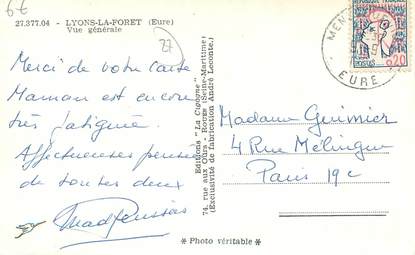 6€
27.377.04 - LYONS-LA-FORET (Eure)
Vue générale
27
Merci de votre carte
Maman est encore
très fatiguée.
Affectueuses pensées
de toutes deux
Editions "La Cigogne"
74, rue aux Ours - ROUEN (Seine-Maritime)
(Exclusivité de fabrication André Leconte.)
EURE
0,20
Madame Guimier
4 Rue Mélingue
Paris 19e
* Photo véritable *